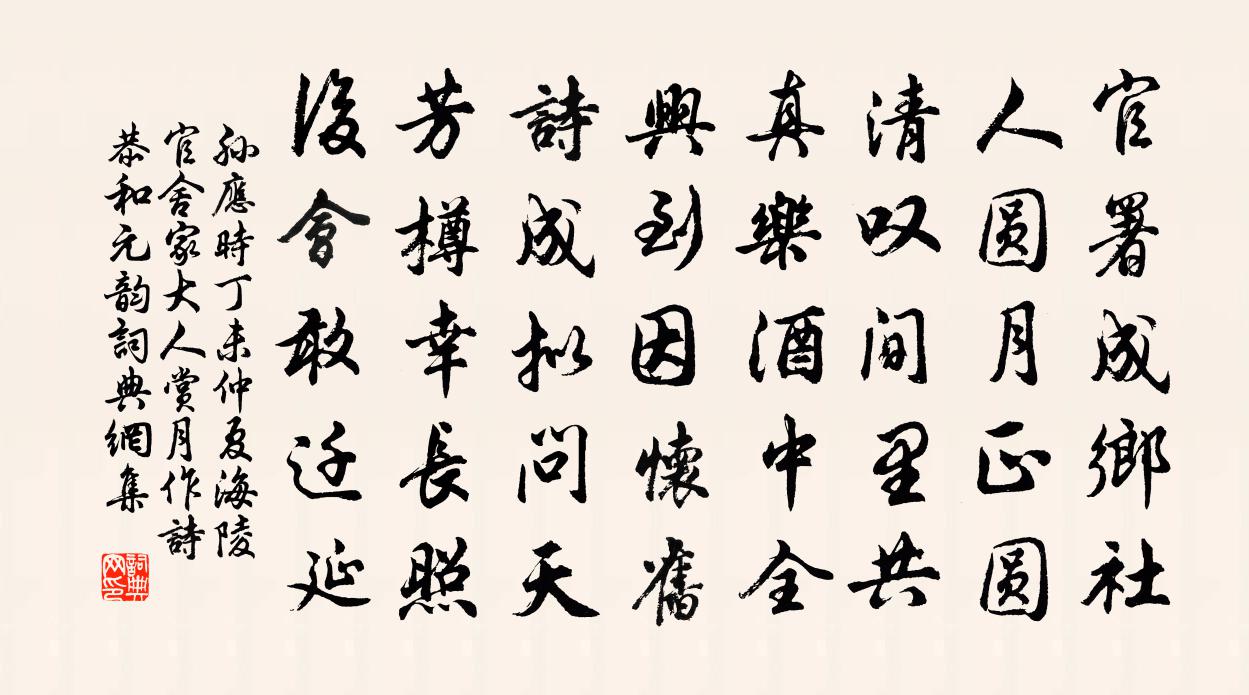 官署成鄉社
人圓月正圓
清叹间里共
真樂酒中全
興到因懷舊
詩成拟問天
芳樽幸長照
後會敢迁延
孙應時丁未仲夏海陵
官舍家大人赏月作詩
恭和元韵詞典網集
詞典网印